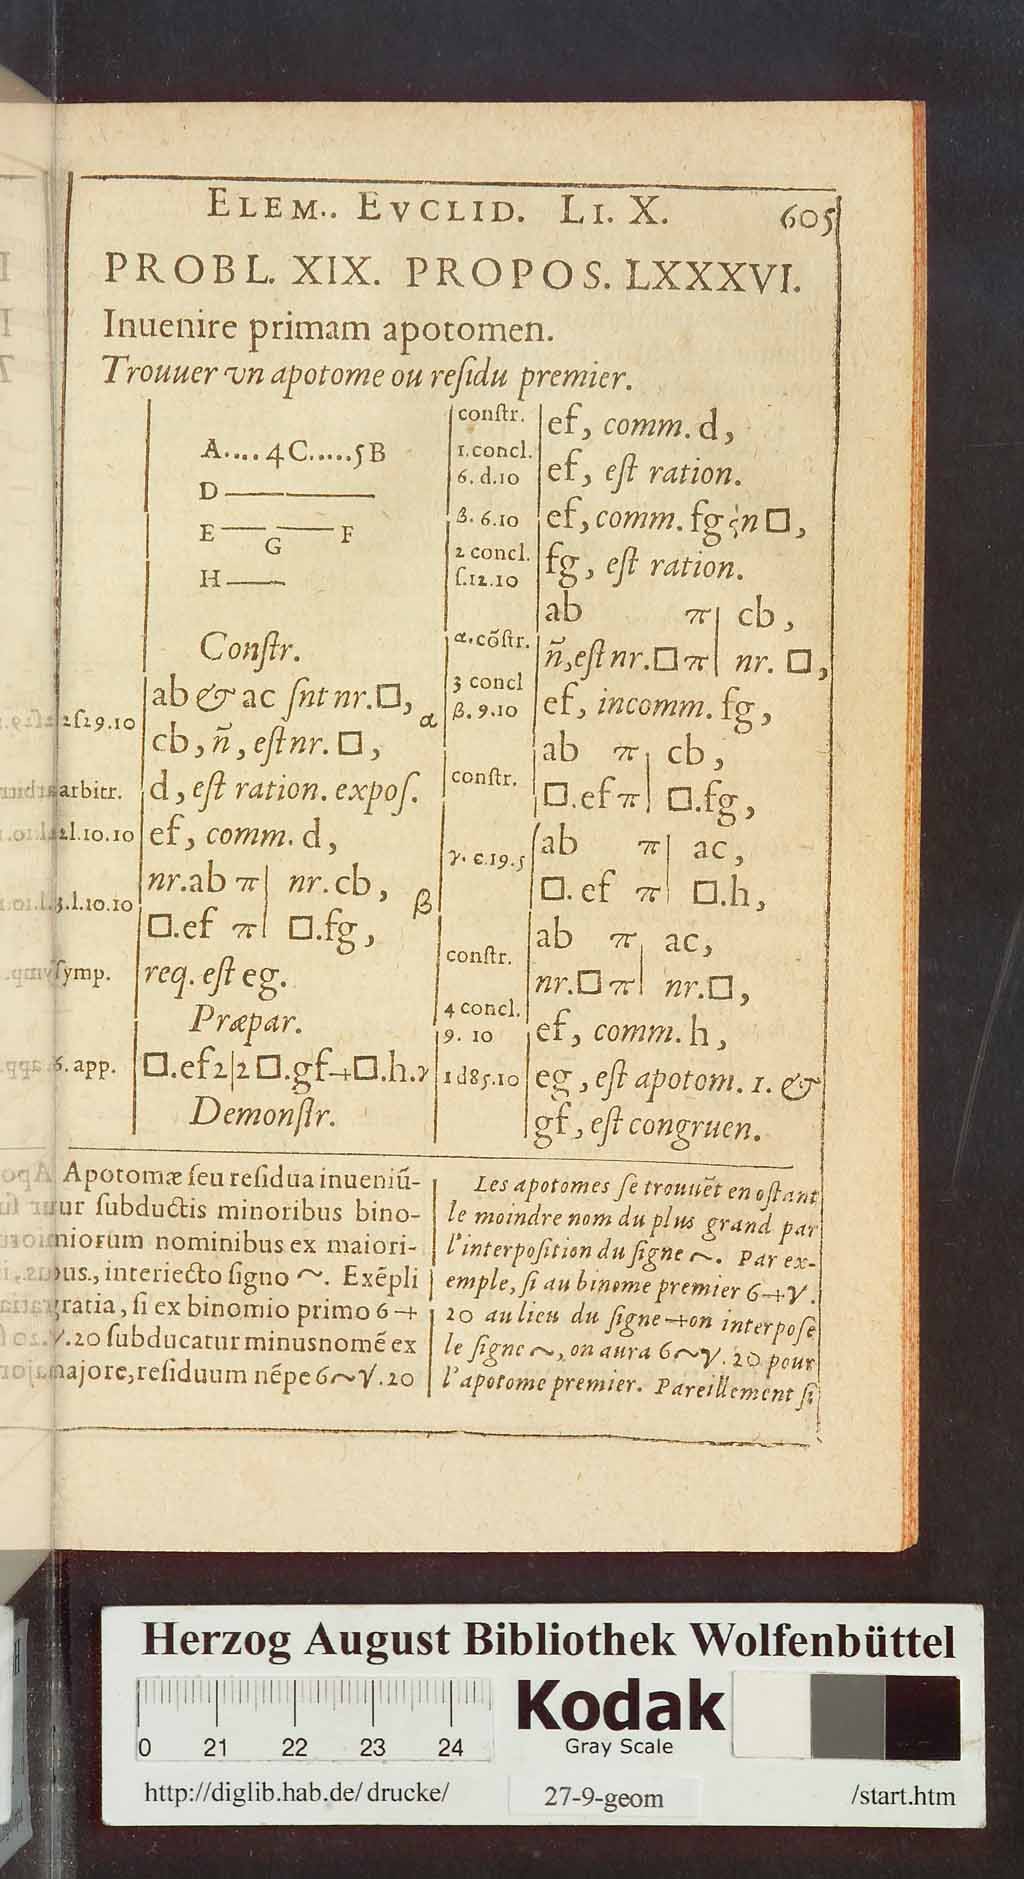 ELEM.. EVCLID. LI. X. 605
PROBL. XIX. PROPOS. LXXXVI.
Inuenire primam apotomen.
Trouuer vn apotome ou reſidu premier.
A....4C.....5B
D
E G F
H
Conſtr.
2ſ29.10 ab & ac ſnt nr.□, α
cb, ñ, eſt nr. □,
arbitr. d, eſt ration. expoſ.
2l.10.10 ef, comm. d,
nr.ab π| nr. cb, β
3.l.10.10 □.ef π| □.fg,
ſymp. req. eſt eg.
Præpar.
6. app. □.ef 2|2 □.gf+□.h. γ
Demonſtr.
conſtr. ef, comm. d,
1.concl.
6. d.10 ef, eſt ration.
β. 6.10 ef, comm. fg n □,
2 concl.
ſ.12.10 fg, eſt ration.
ab π| cb,
α.cõſtr. ñ, eſt nr.□ π| nr. □,
3 concl
β. 9.10 ef, incomm. fg,
ab π| cb,
conſtr. □.ef π| □.fg,
ab π| ac,
γ. c.19.5 □. ef π| □.h,
ab π| ac,
conſtr. nr.□ π| nr.□,
4 concl.
9. 10 ef, comm. h,
1 d85.10 eg, eſt apotom. 1. &
gf, eſt congruen.
Apotomæ ſeu reſidua inueniũ-
tur ſubductis minoribus bino-
miorum nominibus ex maiori-
bus., interiecto ſigno ~. Exẽpli
gratia, ſi ex binomio primo 6 +
√.20 ſubducatur minus nomẽ ex
majore, reſiduum nẽpe 6~√.20
Les apotomes ſe trouuẽt en oſtant
le moindre nom du plus grand par
l'interpoſition du ſigne ~. Par ex-
emple, ſi au binome premier 6+√.
20 au lieu du ſigne + on interpoſe
le ſigne ~, on aura 6~√.20 pour
l'apotome premier. Pareillement ſi
Herzog August Bibliothek Wolfenbüttel
0 21 22 23 24
Kodak
Gray Scale
http://diglib.hab.de/drucke/ 27-9-geom /start.htm